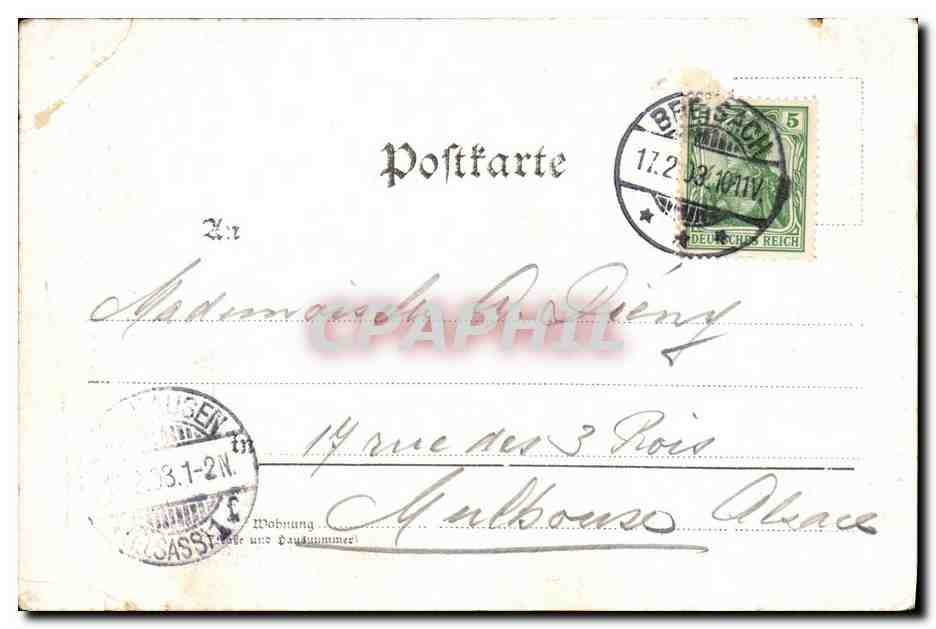 Postkarte
BREISACH
17.2.03. 10-11V
5
DEUTSCHES REICH
An
Mademoiselle Diény
CPAPHIL
HAUSEN
03.1-2N.
ELSASS
in
17 rue des 3 Rois
Wohnung
Mulhouse Alsace
und Hausnummer)